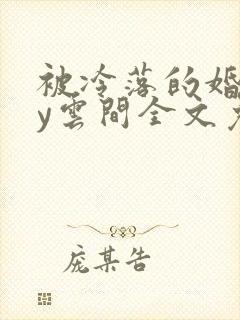 被冷落的婚
y雲間全文
庞某告